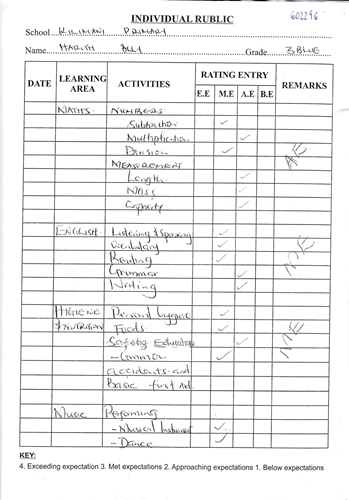 INDIVIDUAL RUBLIC
602296
School KILIMANI PRIMARY
Name HARITH ALI Grade 3 BLUE
DATE LEARNING AREA ACTIVITIES RATING ENTRY REMARKS
E.E M.E A.E B.E
MATHS NUMBERS
Subtraction ✓
Multiplication ✓
Division ✓ A.E
MEASUREMENT
Length ✓
Mass ✓
Capacity ✓
ENGLISH Listening & Speaking ✓
Vocabulary ✓
Reading ✓ M.E
Grammar ✓
Writing ✓
HYGIENE Personal hygiene ✓
& NUTRITION Foods ✓ M.E
Safety Education ✓
- Common ✓
accidents and
Basic first Aid
Music Performing
- Musical Instrument ✓
- Dance ✓
KEY:
4. Exceeding expectation 3. Met expectations 2. Approaching expectations 1. Below expectations